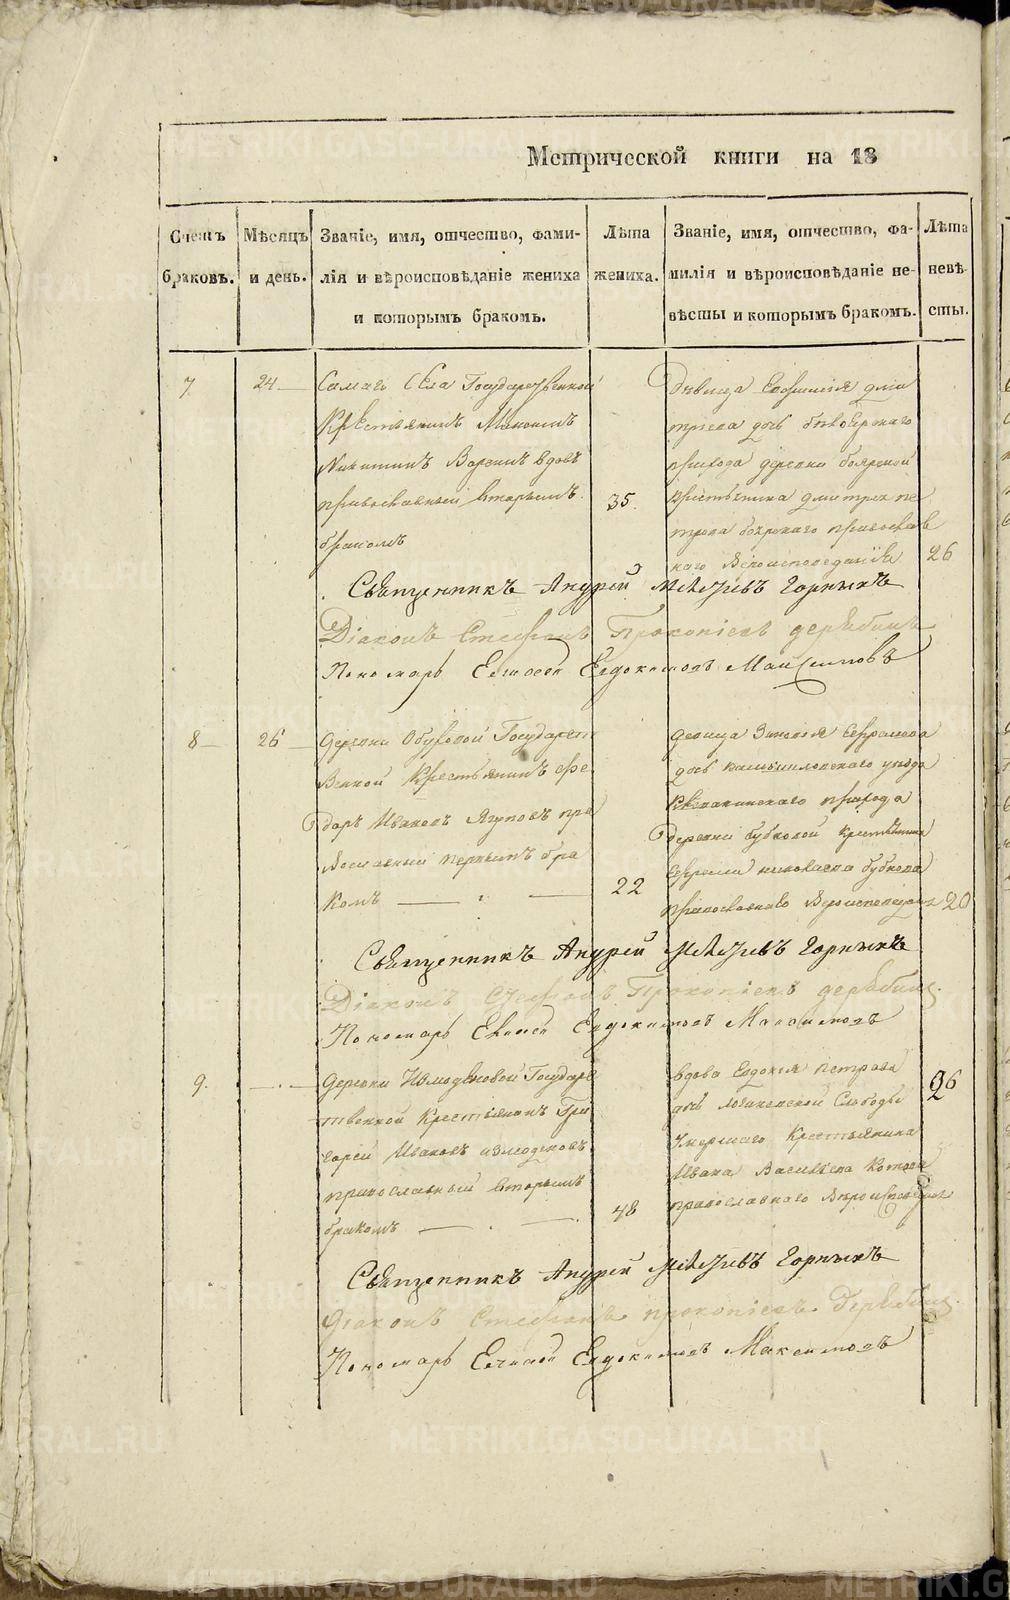 Метрической книги на 18
Счетъ браковъ.
Мѣсяцъ и день.
Званіе, имя, отчество, фами-
лія и вѣроисповѣданіе жениха
и которымъ бракомъ.
Лѣта жениха.
Званіе, имя, отчество, фа-
милія и вѣроисповѣданіе не-
вѣсты и которымъ бракомъ.
Лѣта невѣ-
сты.
7
24
Самаго Села Государственной
Крестьянинъ
Никитинъ вдовъ
православный вторымъ
бракомъ
35.
Дѣвица дми
триева дочь
прихода деревни боярской
крестьянина дмитрея пе
трова православ
наго Вероисповедания
26
Священникъ Андрей Горныхъ
Діаконъ Стефанъ Прокопіевъ дерябинъ
Пономарь Елисей Евдокимовъ Максимовъ
8
26
деревни Обуховой Государст
венной Крестьянинъ Фе
доръ Ивановъ Ягуповъ пра
вославный первымъ бра
комъ
22
девица Ефремова
дочь уезда
прихода
деревни бубновой крестьянина
Ефрема бубнова
православнаго Вероисповедания
20
Священникъ Андрей Горныхъ
Діаконъ Стефанъ Прокопіевъ дерябинъ.
Пономарь Елисей Евдокимовъ Максимовъ
9.
деревни Измоденовой Государс
твенной Крестьянинъ Гри
горей Ивановъ измоденовъ
православный вторымъ
бракомъ
48
вдова Евдокия петрова
дочь Слободы
Умершаго Крестьянина
Ивана Васильева
православнаго Вероисповедания
26
Священникъ Андрей Горныхъ
Діаконъ Стефанъ прокопіевъ Дерябинъ.
Пономарь Елисей Евдокимовъ Максимовъ
METRIKI.GASO-URAL.RU